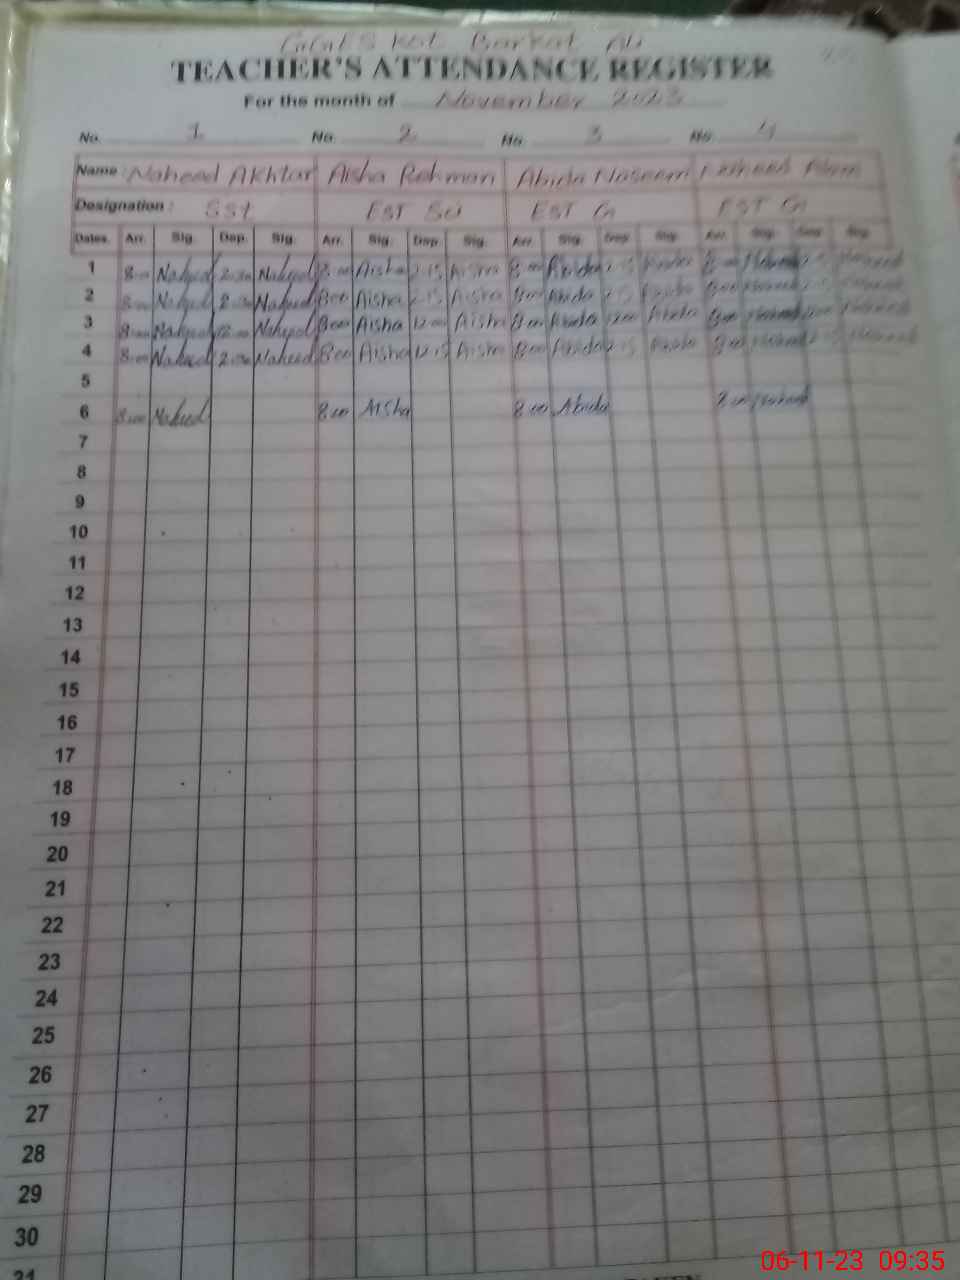 GGES Kot Barkat Ali
TEACHER'S ATTENDANCE REGISTER
For the month of November 2023
No. 1 No. 2 No. 3 No. 4
Name: Naheed Akhtar Aisha Rehman Abida Naseem
Designation: SSt EST Sci EST G EST G
Dates. Arr. Sig. Dep. Sig. Arr. Sig. Dep. Sig. Arr. Sig. Dep. Sig. Arr. Sig. Dep. Sig.
1 8:00 Naheed Naheed 8:00 Aisha 2:15 Aisha 8:00 Abida 8:00
2 8:00 Naheed Naheed 8:00 Aisha 2:15 Aisha 8:00 Abida 8:00
3 8:00 Naheed 12:00 Naheed 8:00 Aisha 12:00 Aisha 8:00 Abida 12:00 Abida 8:00
4 8:00 Naheed Naheed 8:00 Aisha 12:15 Aisha 8:00 Abida 8:00
5
6 8:00 Naheed 8:00 Aisha 8:00 Abida 8:00
7
8
9
10
11
12
13
14
15
16
17
18
19
20
21
22
23
24
25
26
27
28
29
30
31
06-11-23 09:35